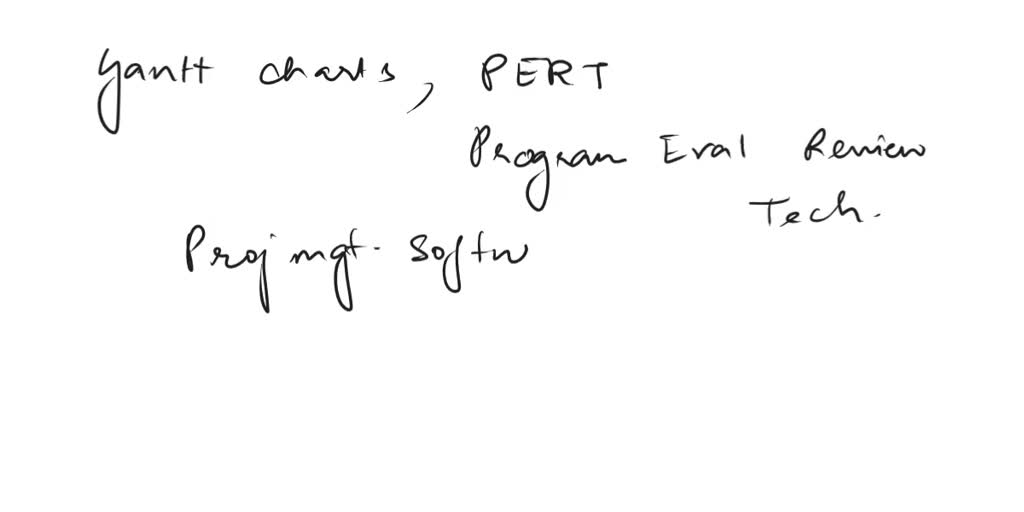 Gantt charts, PERT
Program Eval Review
Tech.
Proj mgt. softw